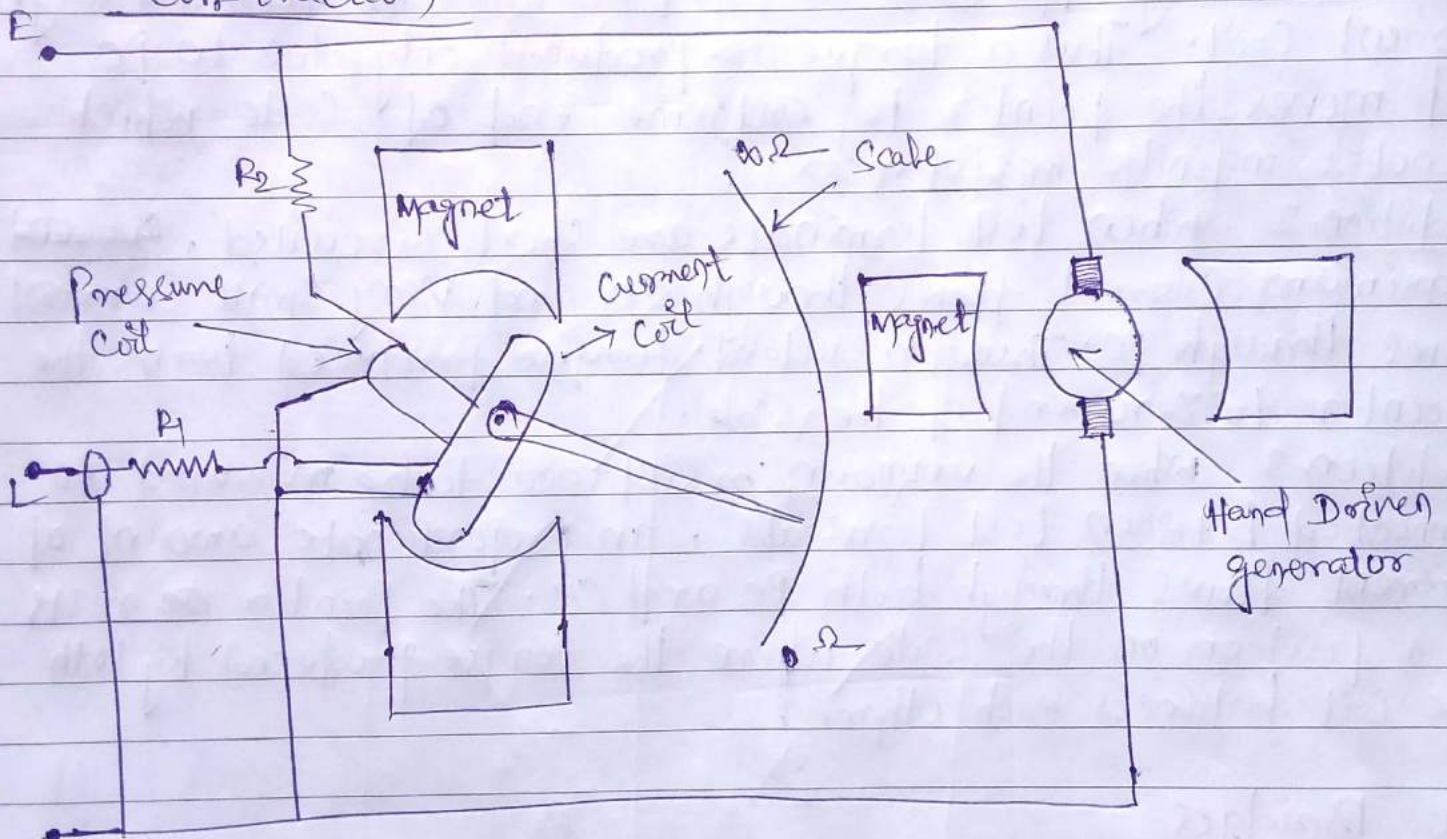 Construction,
E
R2
Magnet
∞Ω
Scale
Pressure
Coil
Current
Coil
Magnet
R1
L
Hand Driven
generator
Ω